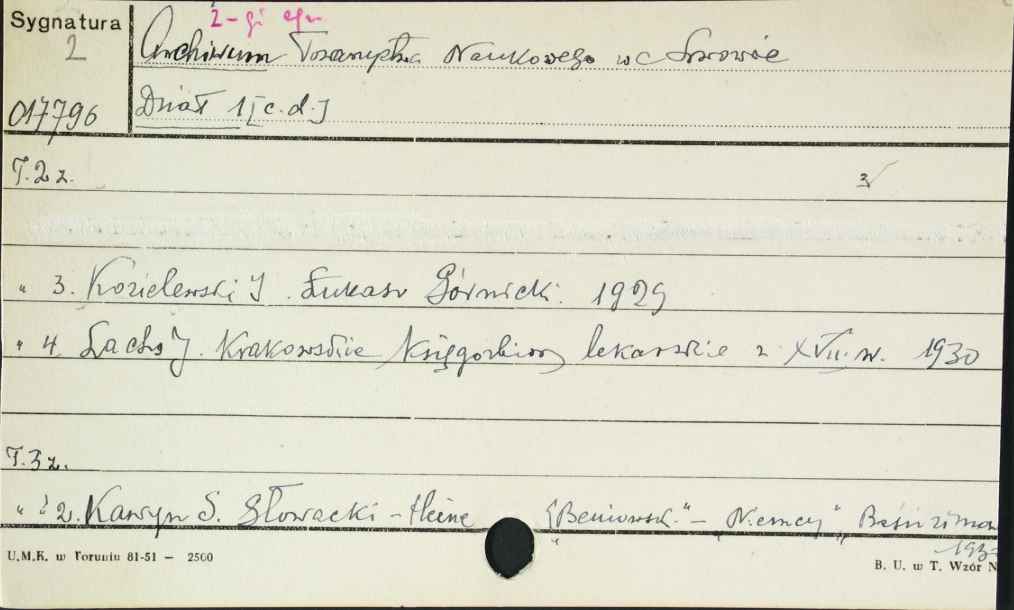 Sygnatura
2-gi egz.
2
Archiwum Towarzystwa Naukowego we Lwowie
017796
Dział 1 [c.d.]
T.2 z.
3
" 3. Kozielewski J. Łukasz Górnicki. 1929
" 4. Lachs J. Krakowskie Księgozbiory lekarskie z XVII. w. 1930
T.3 z.
" 2. Kawyn S. Słowacki - Heine "Beniowski" - "Niemcy" Baśń zimowa
U.M.K. w Toruniu 81-51 — 2500
B. U. w T. Wzór N